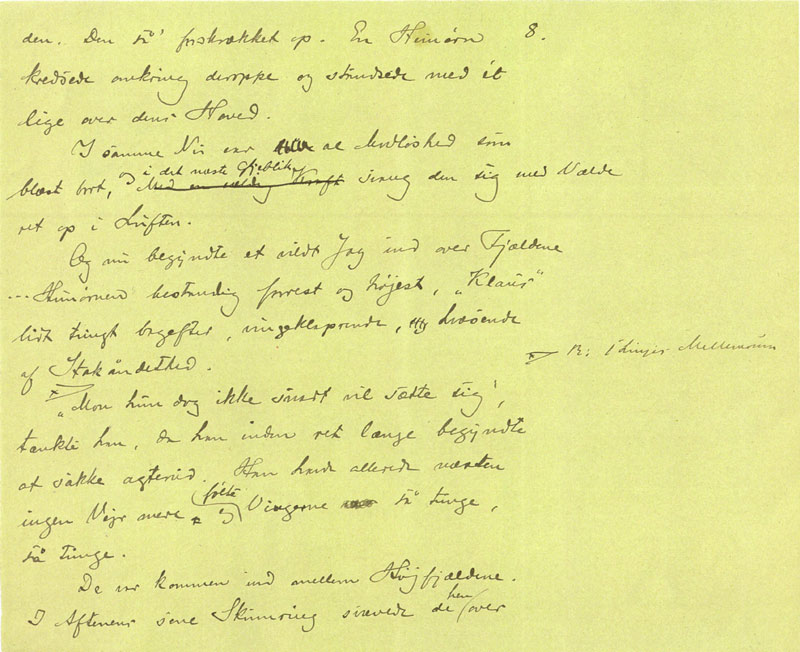 den. Den så' forskrækket op. En Hunørn 8.
kredsede omkring deroppe og standsede med ét
lige over dens Hoved.
I samme Nu var al Modløshed som
blæst bort, og i det næste Øjeblik
Med en vældig Kraft svang den sig med Vælde
ret op i Luften.
Og nu begyndte et vildt Jag ind over Fjældene
... Hunørnen bestandig forrest og højest, "Klaus"
lidt tungt bagefter, vingeklaprende, hvæsende
af Stakåndethed.
B: 1 Linjes Mellemrum
"Mon hun dog ikke snart vil sætte sig',
tænkte han, da han inden ret længe begyndte
at sakke agterud. Han havde allerede næsten
ingen Vejr mere og følte Vingerne så tunge,
så tunge.
De var kommen ind mellem Højfjældene.
I Aftenens sene Skumring svævede de hen over